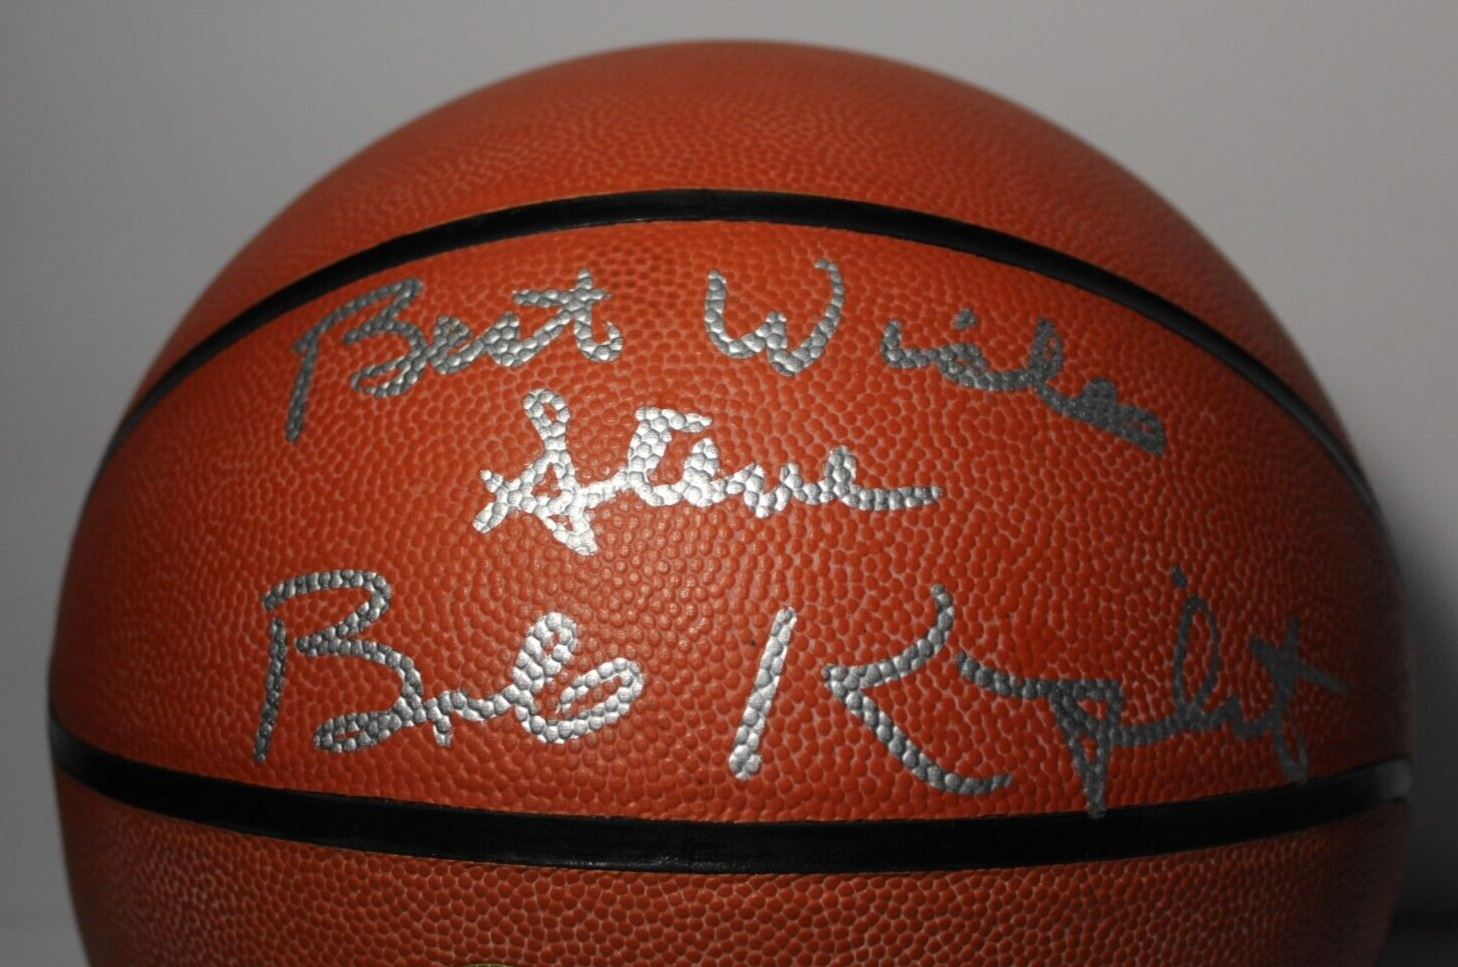 Best Wishes
Steve
Bob Knight